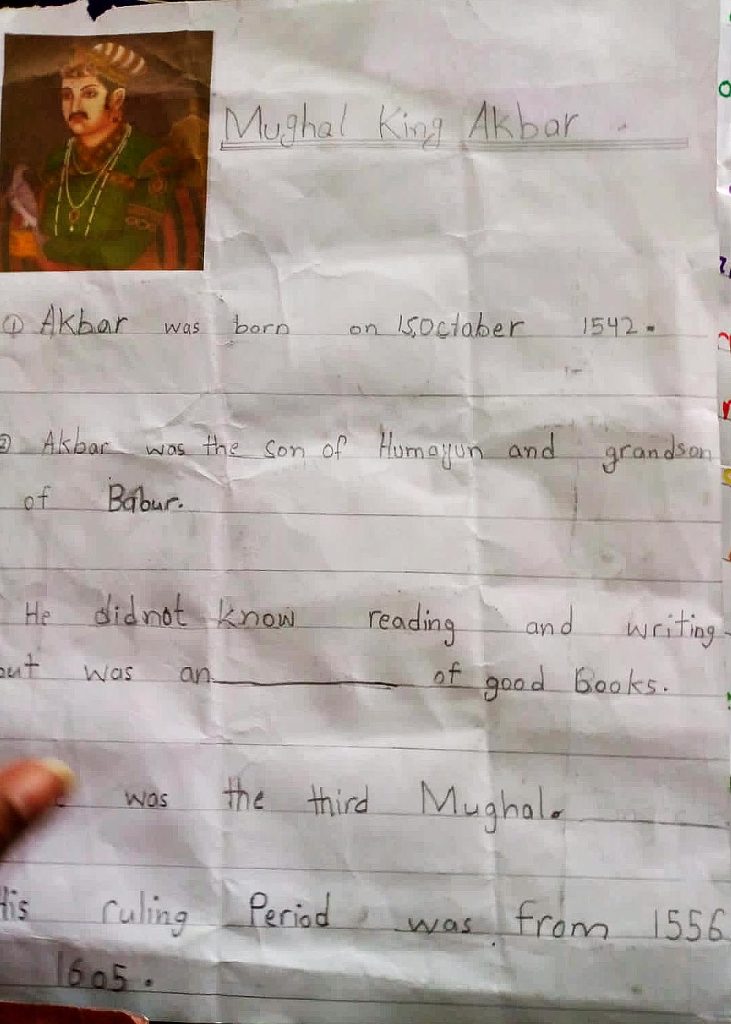 Mughal King Akbar
① Akbar was born on 15,Octaber 1542.
② Akbar was the son of Humayun and grandson
of Babur.
He didnot know reading and writing
but was an__________ of good Books.
was the third Mughal. __________
His ruling Period was from 1556
1605.